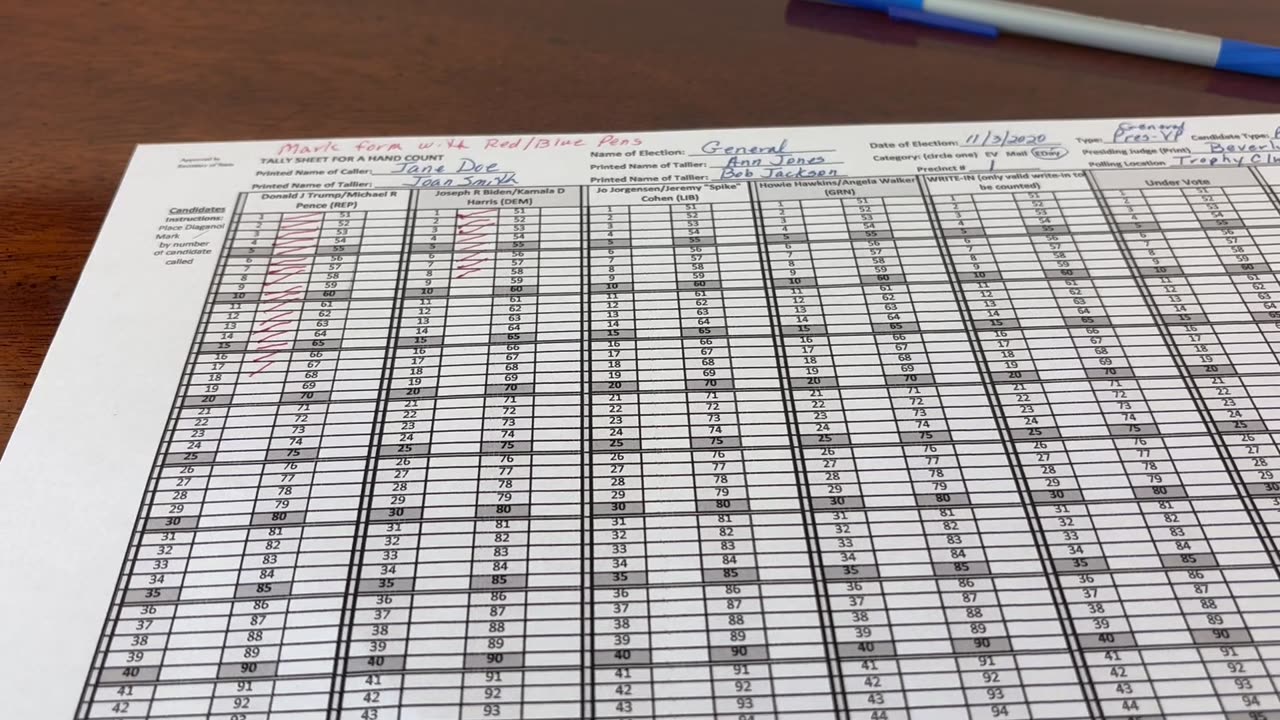 Mark form with Red/Blue Pens
TALLY SHEET FOR A HAND COUNT
Printed Name of Caller: Jane Doe
Printed Name of Tallier: Joan Smith
Name of Election: General
Printed Name of Tallier: Ann Jones
Printed Name of Tallier: Bob Jackson
Date of Election: 11/3/2020
Category: (circle one) EV Mail EDay
Precinct # 1
Type: General Pres-VP Candidate Type:
Presiding Judge (Print)
Polling Location Trophy Clu
Candidates
Instructions:
Place Diaganol
Mark
by number
of candidate
called
Donald J Trump/Michael R
Pence (REP)
Joseph R Biden/Kamala D
Harris (DEM)
Jo Jorgensen/Jeremy "Spike"
Cohen (LIB)
Howie Hawkins/Angela Walker
(GRN)
WRITE-IN (only valid write-in to
be counted)
Under Vote
1 51 1 51 1 51 1 51 1 51 1 51
2 52 2 52 2 52 2 52 2 52 2 52
3 53 3 53 3 53 3 53 3 53 3 53
4 54 4 54 4 54 4 54 4 54 4 54
5 55 5 55 5 55 5 55 5 55 5 55
6 56 6 56 6 56 6 56 6 56 6 56
7 57 7 57 7 57 7 57 7 57 7 57
8 58 8 58 8 58 8 58 8 58 8 58
9 59 9 59 9 59 9 59 9 59 9 59
10 60 10 60 10 60 10 60 10 60 10 60
11 61 11 61 11 61 11 61 11 61 11 61
12 62 12 62 12 62 12 62 12 62 12 62
13 63 13 63 13 63 13 63 13 63 13 63
14 64 14 64 14 64 14 64 14 64 14 64
15 65 15 65 15 65 15 65 15 65 15 65
16 66 16 66 16 66 16 66 16 66 16 66
17 67 17 67 17 67 17 67 17 67
18 68 18 68 18 68 18 68 18 68 18 68
19 69 19 69 19 69 19 69 19 69 19 69
20 70 20 70 20 70 20 70 20 70 20 70
21 71 21 71 21 71 21 71 21 71 21 71
22 72 22 72 22 72 22 72 22 72 22 72
23 73 23 73 23 73 23 73 23 73 23 73
24 74 24 74 24 74 24 74 24 74 24 74
25 75 25 75 25 75 25 75 25 75 25 75
26 76 26 76 26 76 26 76 26 76 26 76
27 77 27 77 27 77 27 77 27 77 27 77
28 78 28 78 28 78 28 78 28 78 28 78
29 79 29 79 29 79 29 79 29 79 29 79
30 80 30 80 30 80 30 80 30 80 30 80
31 81 31 81 31 81 31 81 31 81 31 81
32 82 32 82 32 82 32 82 32 82 32 82
33 83 33 83 33 83 33 83 33 83 33 83
34 84 34 84 34 84 34 84 34 84 34 84
35 85 35 85 35 85 35 85 35 85 35 85
36 86 36 86 36 86 36 86 36 86 36 86
37 87 37 87 37 87 37 87 37 87 37 87
38 88 38 88 38 88 38 88 38 88 38 88
39 89 39 89 39 89 39 89 39 89 39 89
40 90 40 90 40 90 40 90 40 90 40 90
41 91 41 91 41 91 41 91 41 91 41 91
42 92 42 92 42 92 42 92 42 92 42 92
93 43 93 43 93 43 93 43 93 43 93
44 94 44 94